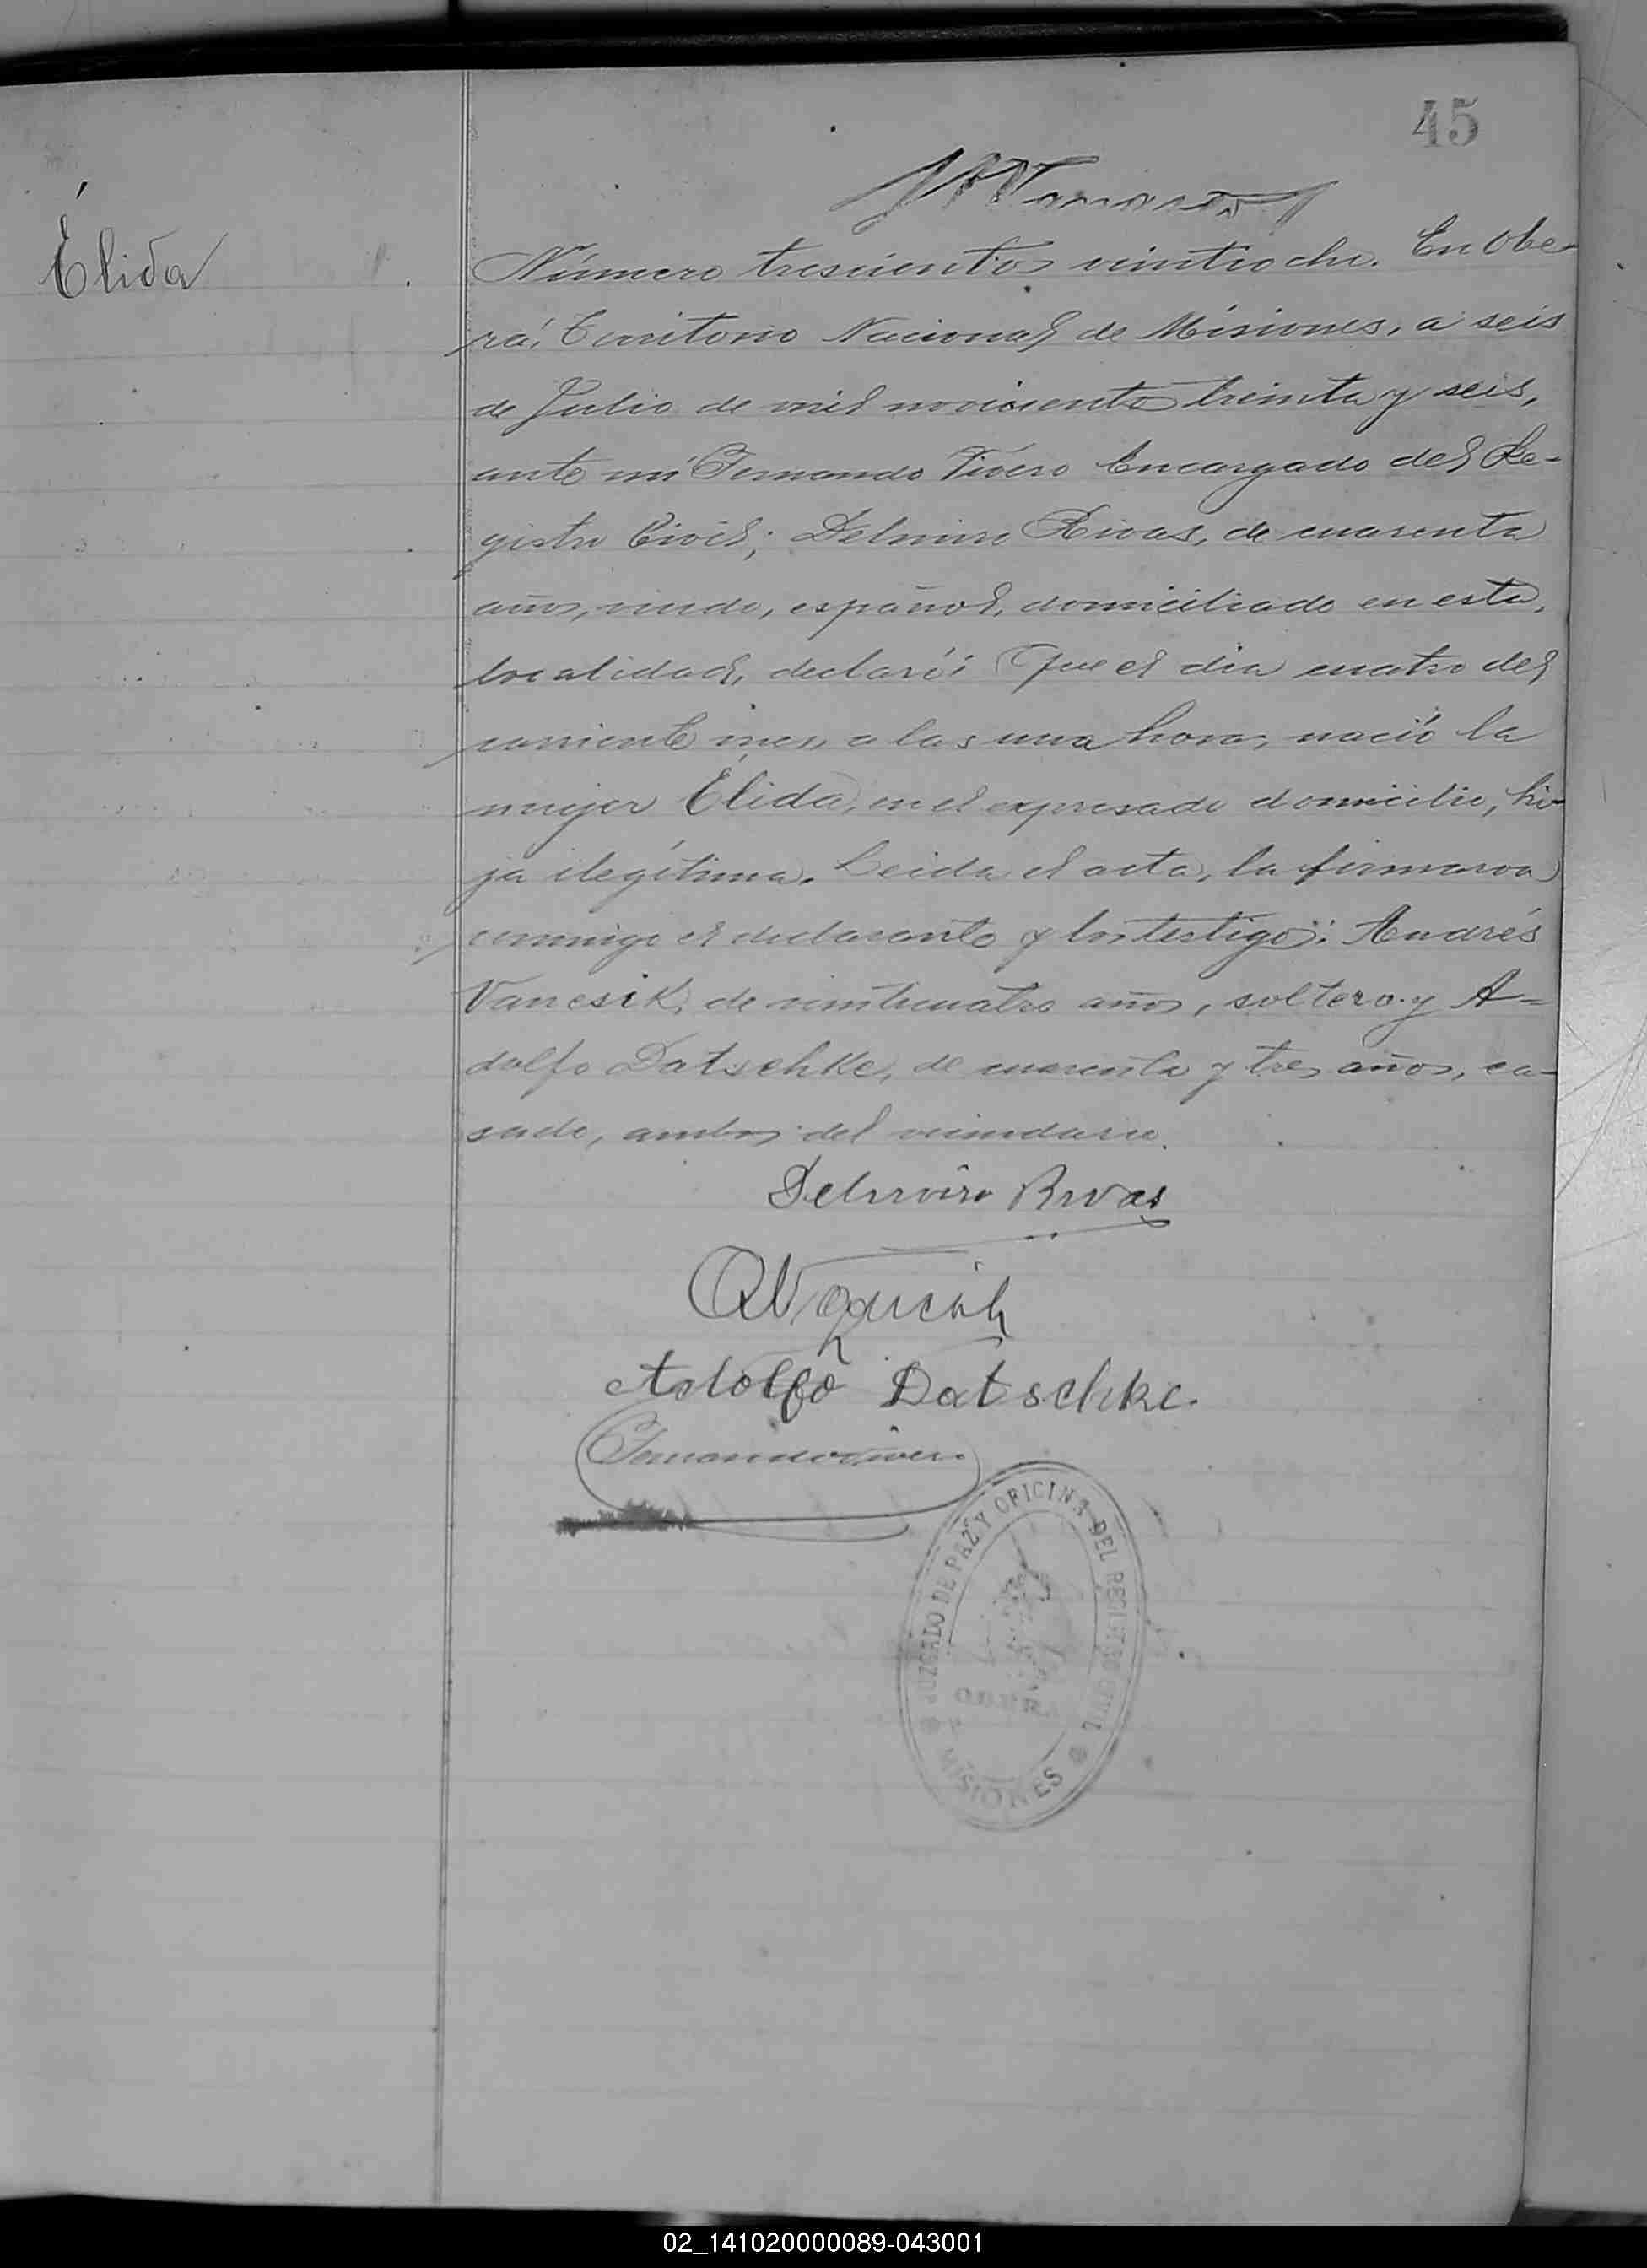 45
Élida
Número trescientos veintiocho. En Obe-
rá, Territorio Nacional de Misiones, a seis
de Julio de mil novecientos treinta y seis,
ante mí Fernando Vivero Encargado del Re-
gistro Civil; Delmiro Rivas, de cuarenta
años, viudo, español, domiciliado en esta
localidad, declaró: Que el día cuatro del
corriente mes, a las una hora, nació la
mujer Élida, en el expresado domicilio, hi-
ja ilegítima. Leida el acta, la firmaron
conmigo el declarante y los testigos: Andrés
Vancsik, de veinticuatro años, soltero y A-
dolfo Datschke, de cuarenta y tres años, ca-
sado, ambos del vecindario.
Delmiro Rivas
Adolfo Datschke.
JUZGADO DE PAZ Y OFICINA DEL REGISTRO CIVIL
OBERA
MISIONES
02_141020000089-043001